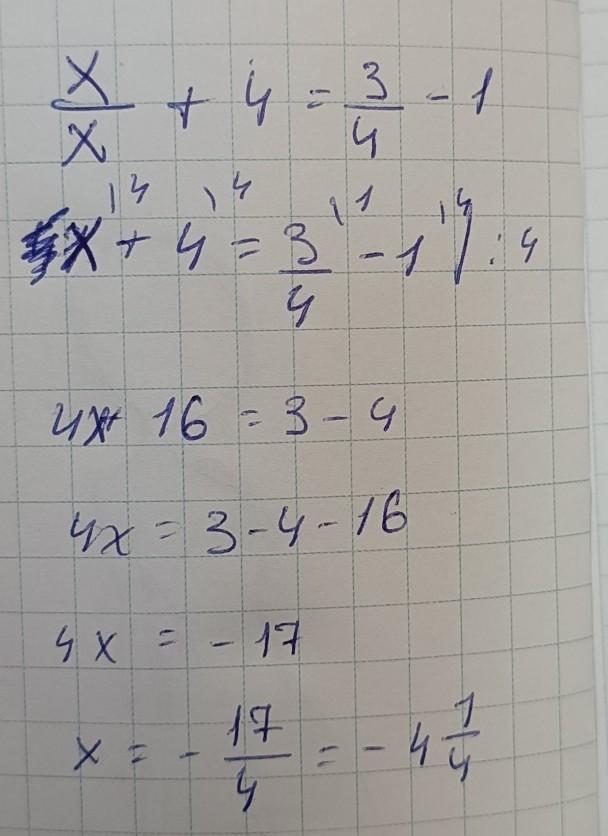 x/x + 4 = 3/4 - 1
x\4 + 4\4 = 3/4\1 - 1\4 / : 4
4x + 16 = 3 - 4
4x = 3 - 4 - 16
4x = - 17
x = - 17/4 = - 4 1/4